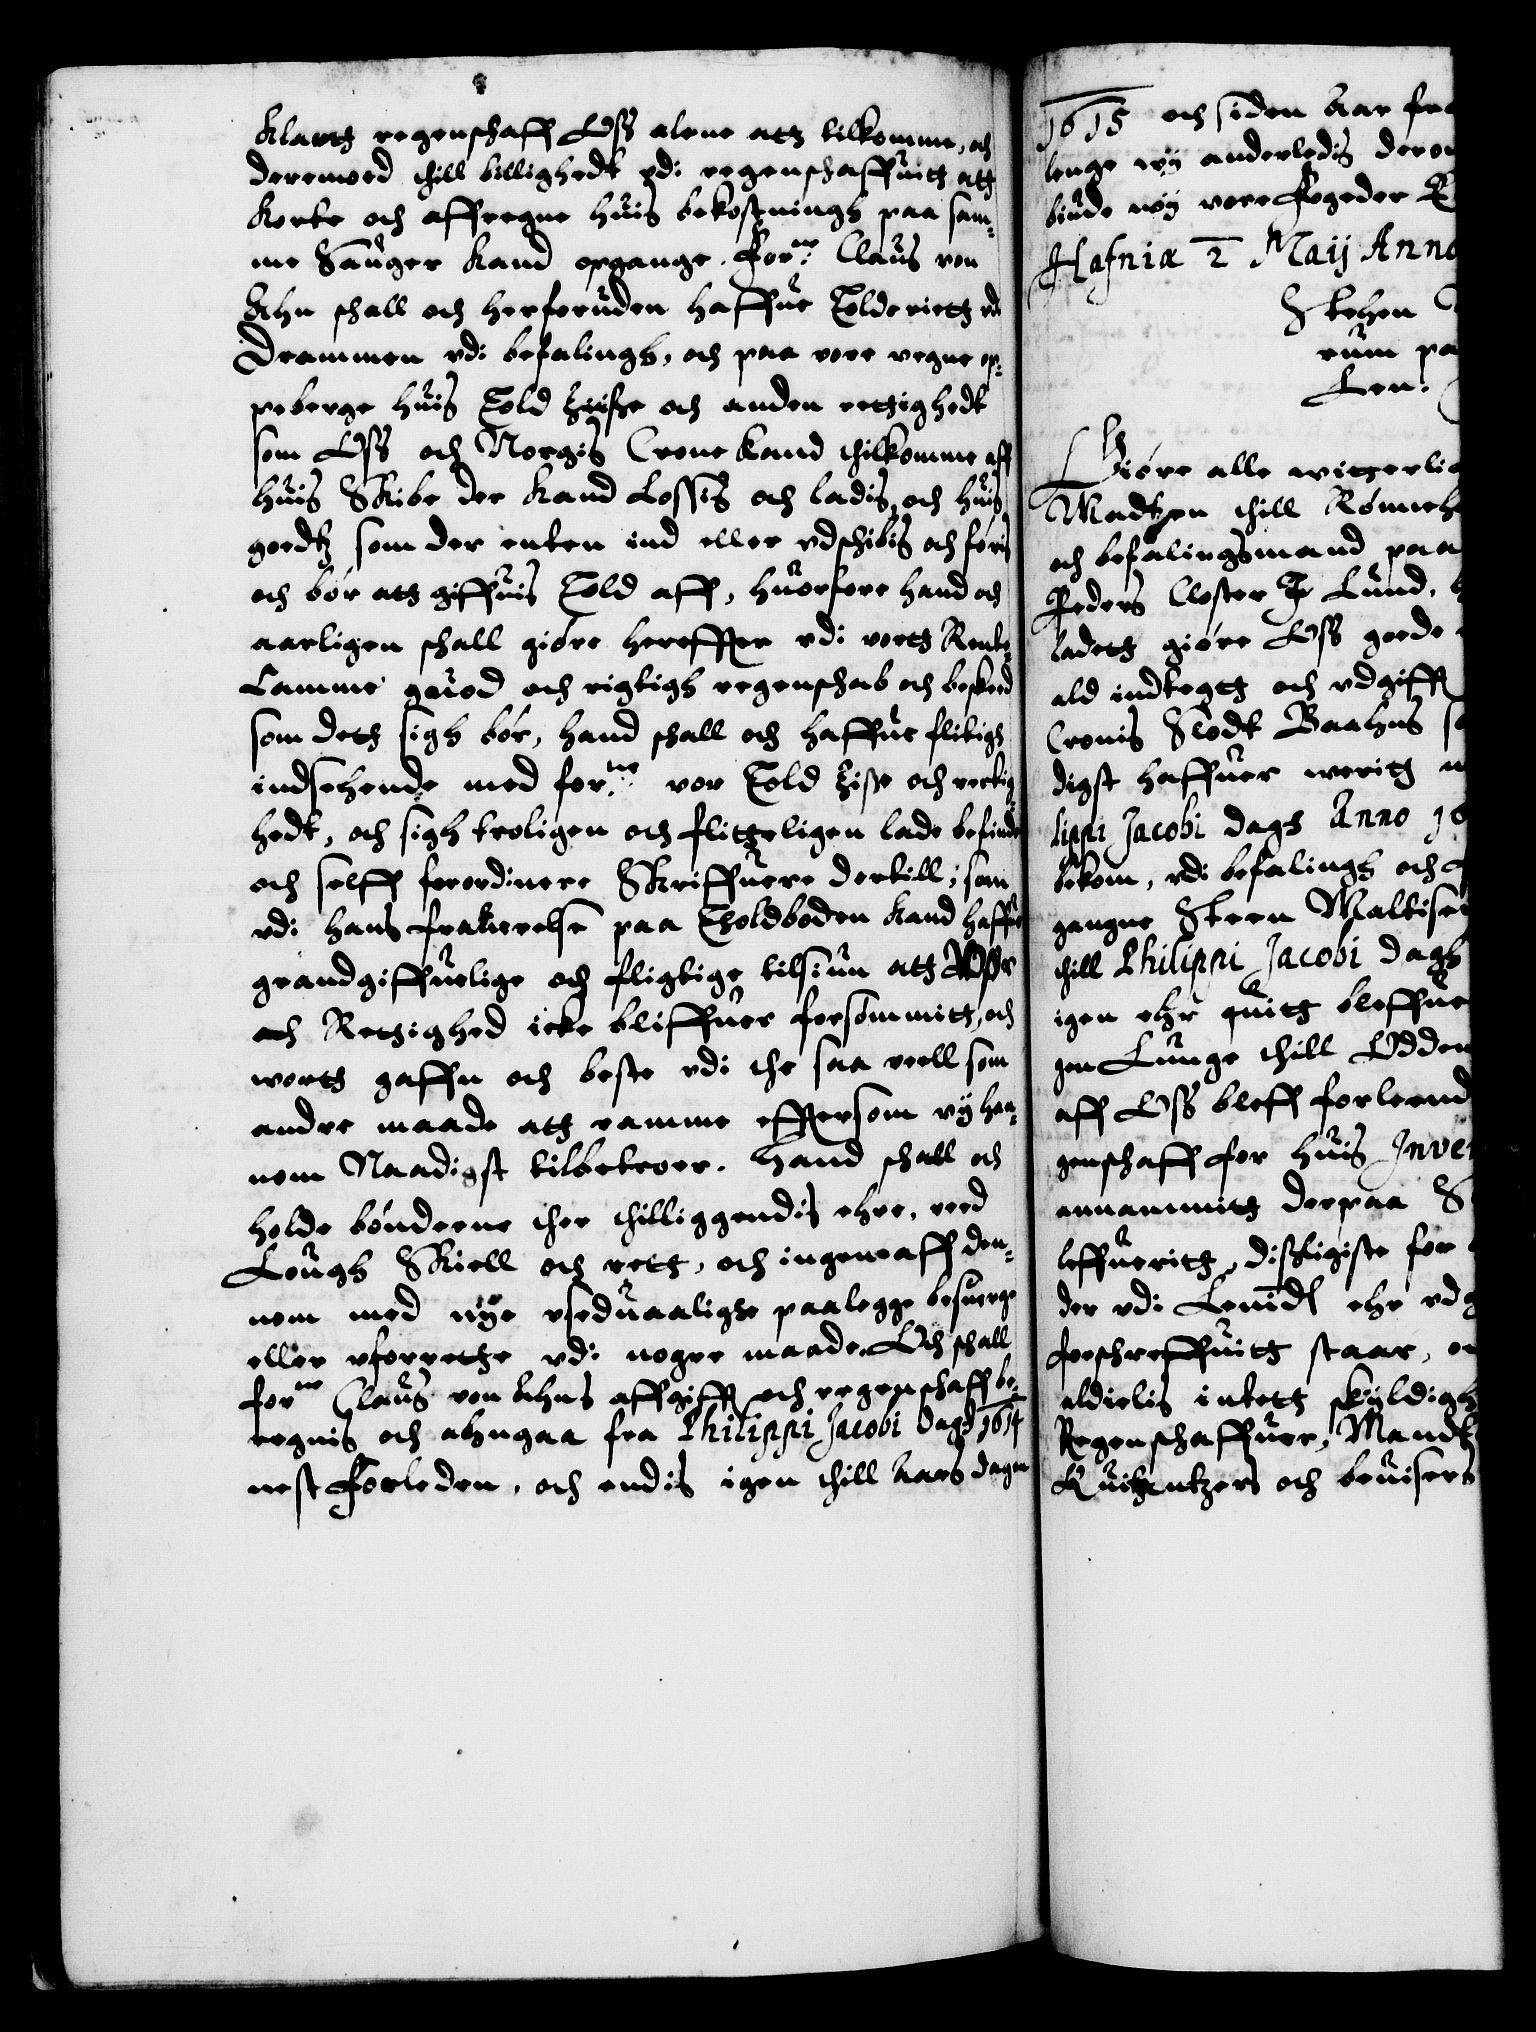 Klartt regenschaff Oss alene att tilkomme, och
deremoed thill billighedt vdi regenschaffuitt att
Korte och affregne huis bekostningh paa sam¬
me Sauger kand opgange. Forne: Claus von
Ahn shall och herforuden haffue Tolderiett vdi
Drammen vdi befalingh, och paa vore vegne op¬
peberge huis Told Zisse och anden rettighedt
som Oss och Norgis Crone kand thilkomme aff
huis Skibe der kand Lossis och ladis, och huis
goedtz som der enten ind eller vdschibis och føris
och bør att giffuis Told aff, huorfore hand och
aarligen shall giøre hereffter vdi vortt Rente¬
Camme guod och rigtigh regenschab och beskeed
som dett sigh bør, hand shall och haffue flitigh
indsehende med forne: vor Told Zisse och rettig
hedt, och sigh troligen och flitteligen lade befinde
och selff forordinere Skriffuere dertill, som
vdi hans frauerelse paa Tholdboden kand haffue
grandgiffuelige och fligtige tilsiun att
och Rettighed icke bliffuer forsømmitt, och
wortt gaffn och beste vdi the saa vell som
andre maade att ramme efftersom vÿ han¬
nom Naadigst tilbetroer. Hand shall och
holde bønderne ther thilliggendis ehre, ved
Lough Skiell och rett, och ingen aff den¬
nom med nÿe vseduaaligtze paalegge besuerge
eller vforrette vdi nogre maade. Och shall
forne Claus von Ahns affgifft och regenschaff be¬
regnis och ahngaa fra Philippi Jacobi Dagh 1614
nest forleden, och endis igen thill Aars dagen
1615 och siden Aar fra
lenge wÿ anderledis derom
biude wÿ vore fogeder
Hafniæ 2 Maij Anno
Stehen
rum paa
Len.
Giøre alle witterlig
Madtzen thill Rønneh
och befalingsmand paa
Peders Closter J Lund,
ladett giøre Oss goede
ald indtegtt och vdgifft
Cronis Slodt Baahus
digst haffuer weritt
lippi Jacobi dags Anno 16
bekom, vdi befalingh och
gangne Steen Maltisen
thill Philippi Jacobi dagh
igen ehr quitt bleffuen
gen Lunge thill Odden
aff Oss bleff forleend
genschaff for huis Inven
annammitt derpaa
leffueritt, dissligiste for
der vdi Lenidt ehr vd
forschreffuitt staar,
aldielis intett skÿldigh
Regenschaffuer, Mandt
Quitantzers och beuisers